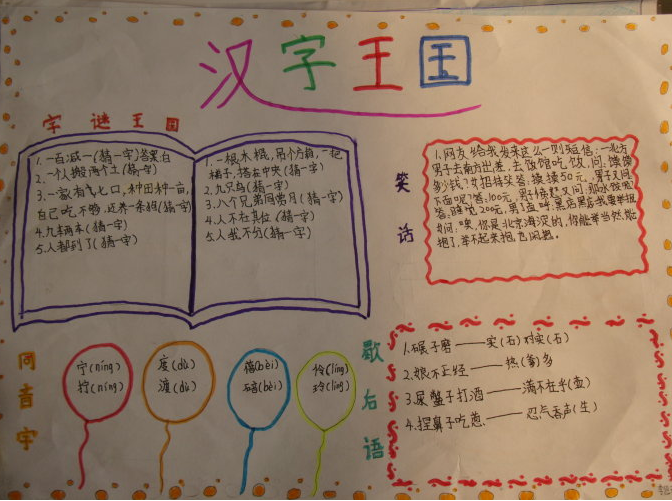 汉字王国
字谜王国
1.一百减一(猜一字)答案:白
2.一个人搬两个土(猜一字)
3.一家有七口,种田种一亩,
自己吃不够,还养一条狗(猜一字)
4.九辆车(猜一字)
5.人都到了(猜一字)
1.一根木棍,吊个方箱,一把
梯子,搭在中央(猜一字)
2.九只鸟(猜一字)
3.八个兄弟同赏月(猜一字)
4.人不在其位(猜一字)
5.人我不分(猜一字)
笑话
1.网友给我发来这么一则短信:一北方
男子去南方出差,去饭馆吃饭,问:馒馒
多少钱?女招待笑答:摸摸50元,男子又问:
下面呢?答:100元,男子愤怒又问:那水饺呢
答:睡觉200元,男子直呼:黑店黑店我要举报
女问:噢,你是北京海淀的,你能举当然能
抱了,举不起来抱
同音字
宁(níng)
拧(níng)
度(dù)
渡(dù)
蓓(bèi)
碚(bèi)
伶(líng)
玲(líng)
歇后语
1.碾子磨——实(石)对实(石)
2.娘不正经——热(爹)多
3.尿鳖子打酒——满不在乎(壶)
4.捏鼻子吃葱——忍气吞声(生)